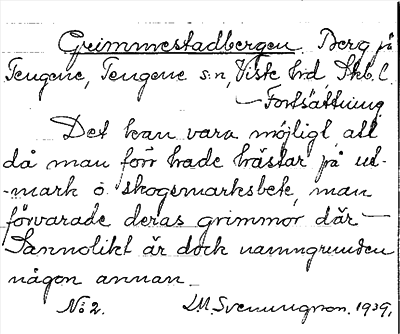 Grimmestadbergen. Berg på
Tengene, Tengene s:n, Viste hrd, Skb. l.
— Fortsättning.
Det kan vara möjligt, att
då man förr hade hästar på ut-
-mark o. skogsmarksbete, man
förvarade deras grimmor där —
Sannolikt är dock namngrunden
någon annan.
No: 2. L.M. Svenungson. 1939.